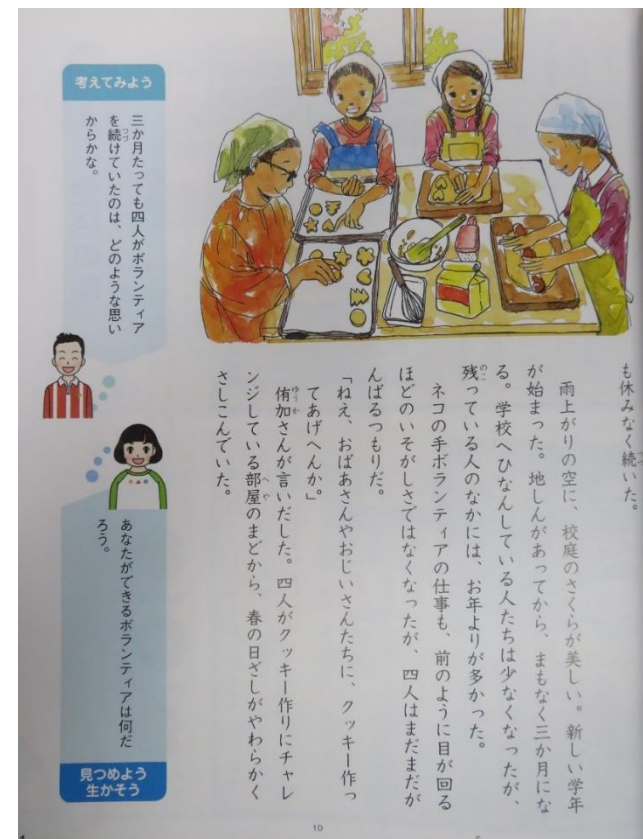 も休みなく続いた。
雨上がりの空に、校庭のさくらが美しい。新しい学年
が始まった。地しんがあってから、まもなく三か月にな
る。学校へひなんしている人たちは少なくなったが、
残っている人のなかには、お年よりが多かった。
ネコの手ボランティアの仕事も、前のように目が回る
ほどのいそがしさではなくなったが、四人はまだまだが
んばるつもりだ。
「ねえ、おばあさんやおじいさんたちに、クッキー作っ
てあげへんか。」
侑加さんが言いだした。四人がクッキー作りにチャレ
ンジしている部屋のまどから、春の日ざしがやわらかく
さしこんでいた。
考えてみよう
三か月たっても四人がボランティア
を続けていたのは、どのような思い
からかな。
あなたができるボランティアは何だ
ろう。
見つめよう
生かそう
10